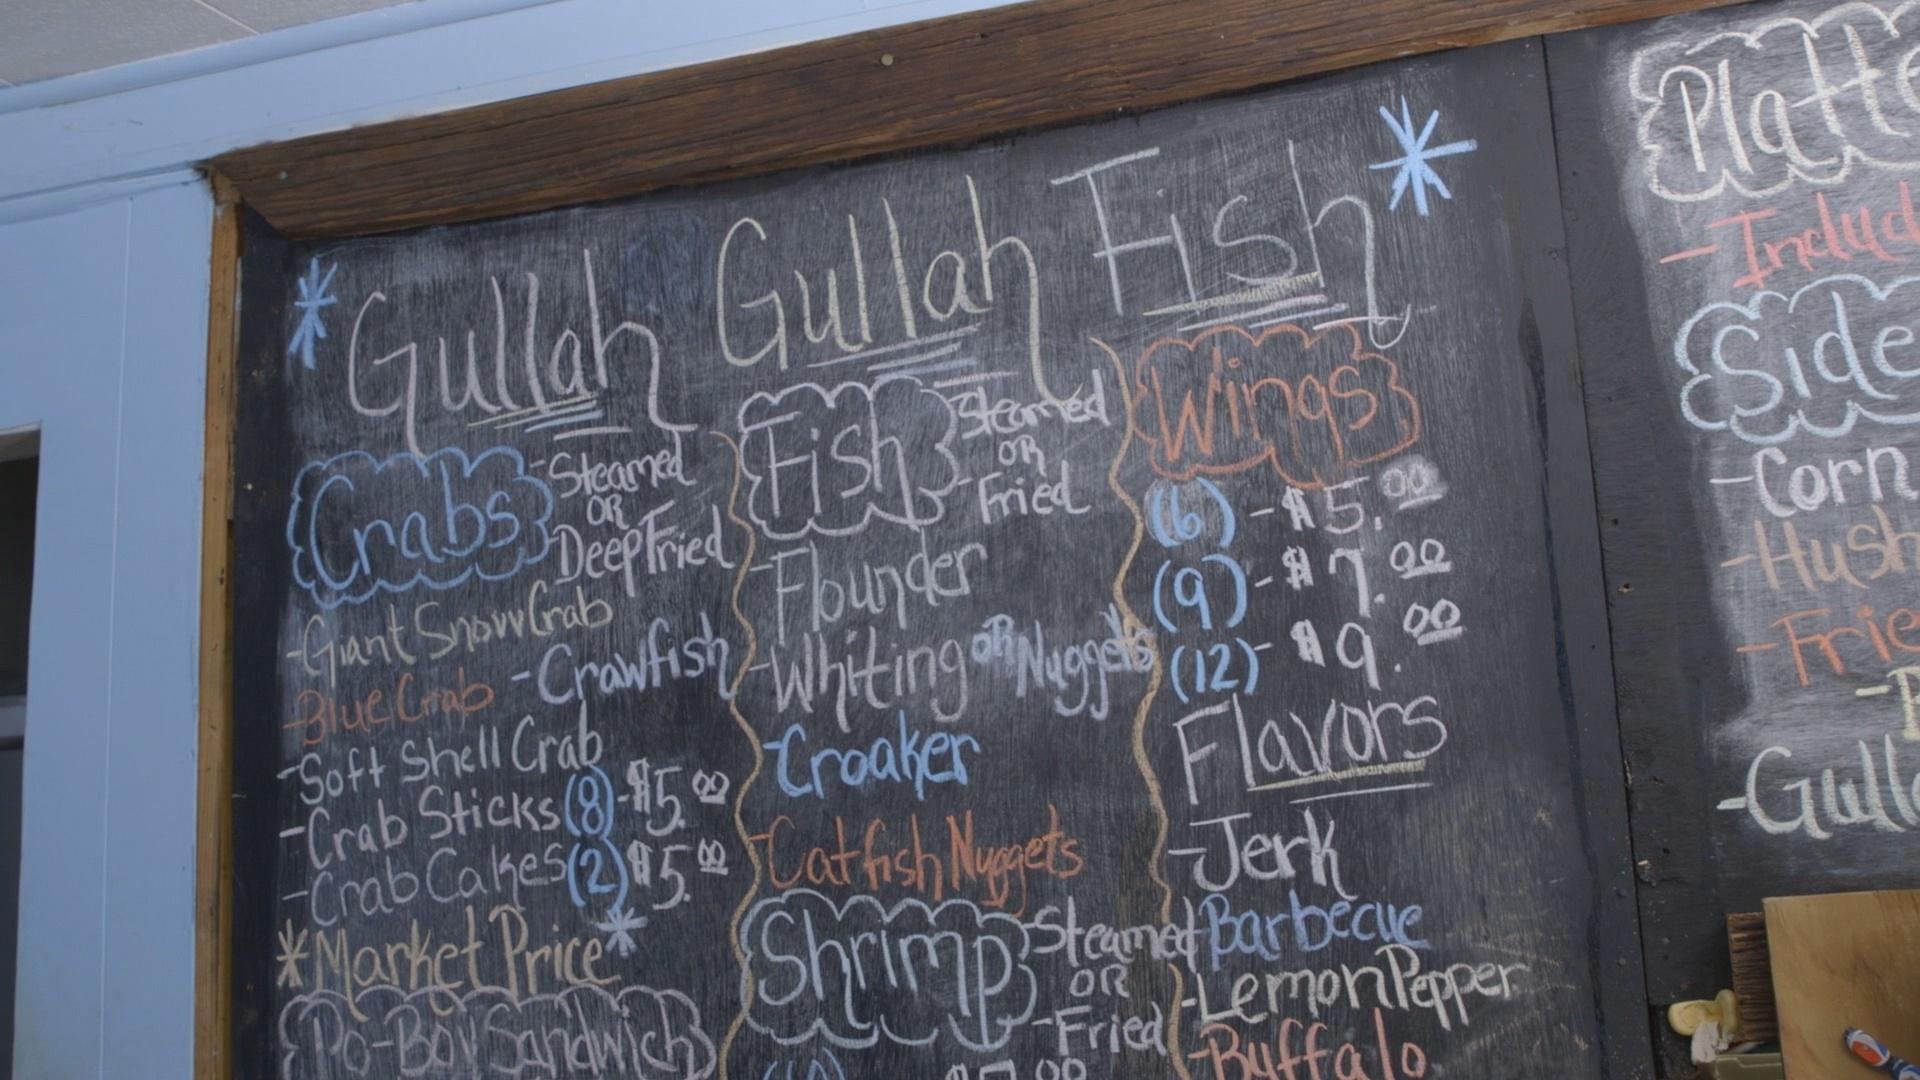 Gullah Gullah Fish
Crabs
-Steamed
OR
DeepFried
-Giant Snow Crab
-Blue Crab -Crawfish
-Soft Shell Crab
-Crab Sticks (8) -$5.00
-Crab Cakes (2) $5.00
*Market Price*
Po-Boy Sandwich
Fish
Steamed
OR
-Fried
-Flounder
-Whiting OR Nuggets
-Croaker
-Catfish Nuggets
Shrimp
-Steamed
OR
-Fried
Wings
(6) - $5.00
(9) - $7.00
(12) - $9.00
Flavors
-Jerk
-Barbecue
-Lemon Pepper
-Buffalo
-Corn
-Hush